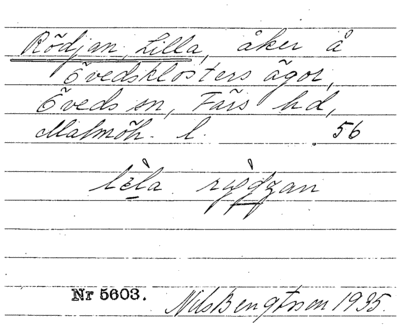 Rödjan, Lilla, åker å
Övedsklosters ägor,
Öveds sn, Färs hd,
Malmöh. l. 56
lìla rỳdjan
Nr 5603.
Nils Bengtsson 1935.